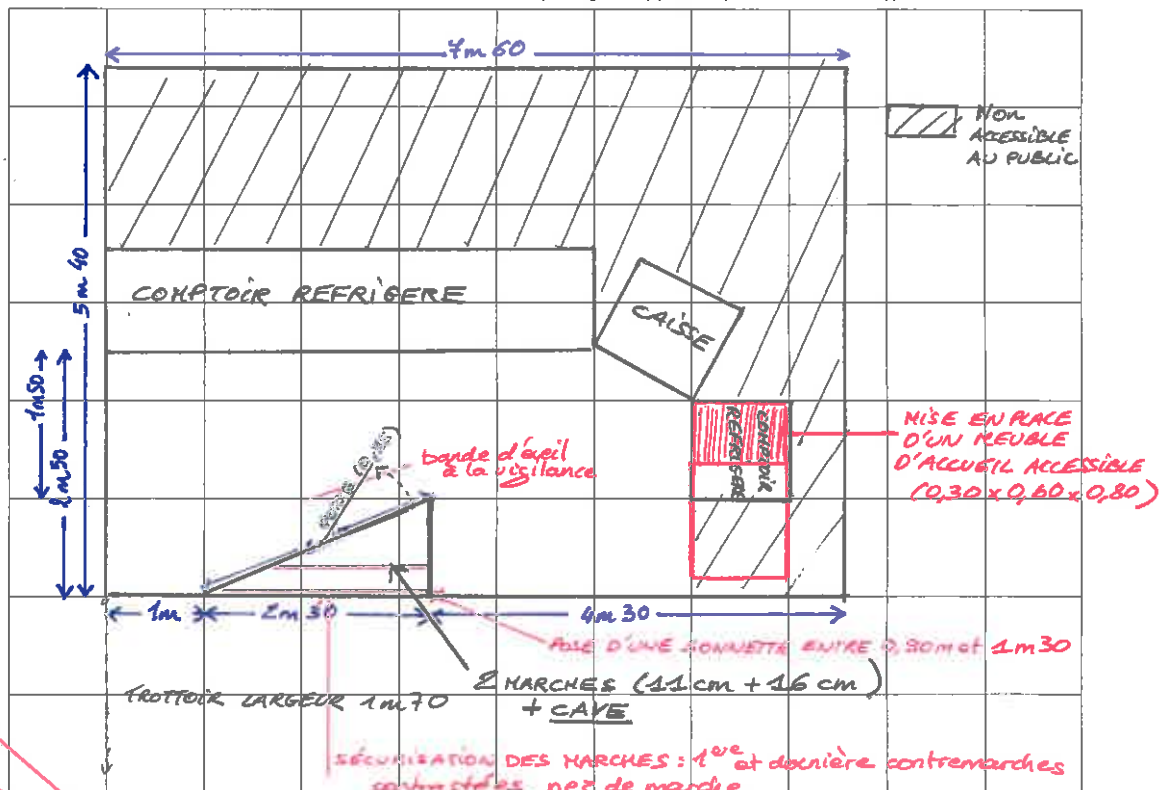 7m 60
NON
ACCESSIBLE
AU PUBLIC
5m 40
COMPTOIR REFRIGERE
CAISSE
1m50
2m50
COMPTOIR
REFRIGERE
MISE EN PLACE
D'UN MEUBLE
D'ACCUEIL ACCESSIBLE
(0,30 x 0,60 x 0,80)
bande d'éveil
à la vigilance
1m
2m30
4m30
POSE D'UNE SONNETTE ENTRE 0,90m et 1m30
2 MARCHES (11 cm + 16 cm)
+ CAVE
TROTTOIR LARGEUR 1m70
SÉCURISATION DES MARCHES : 1ère et dernière contremarches
contrastées nez de marche